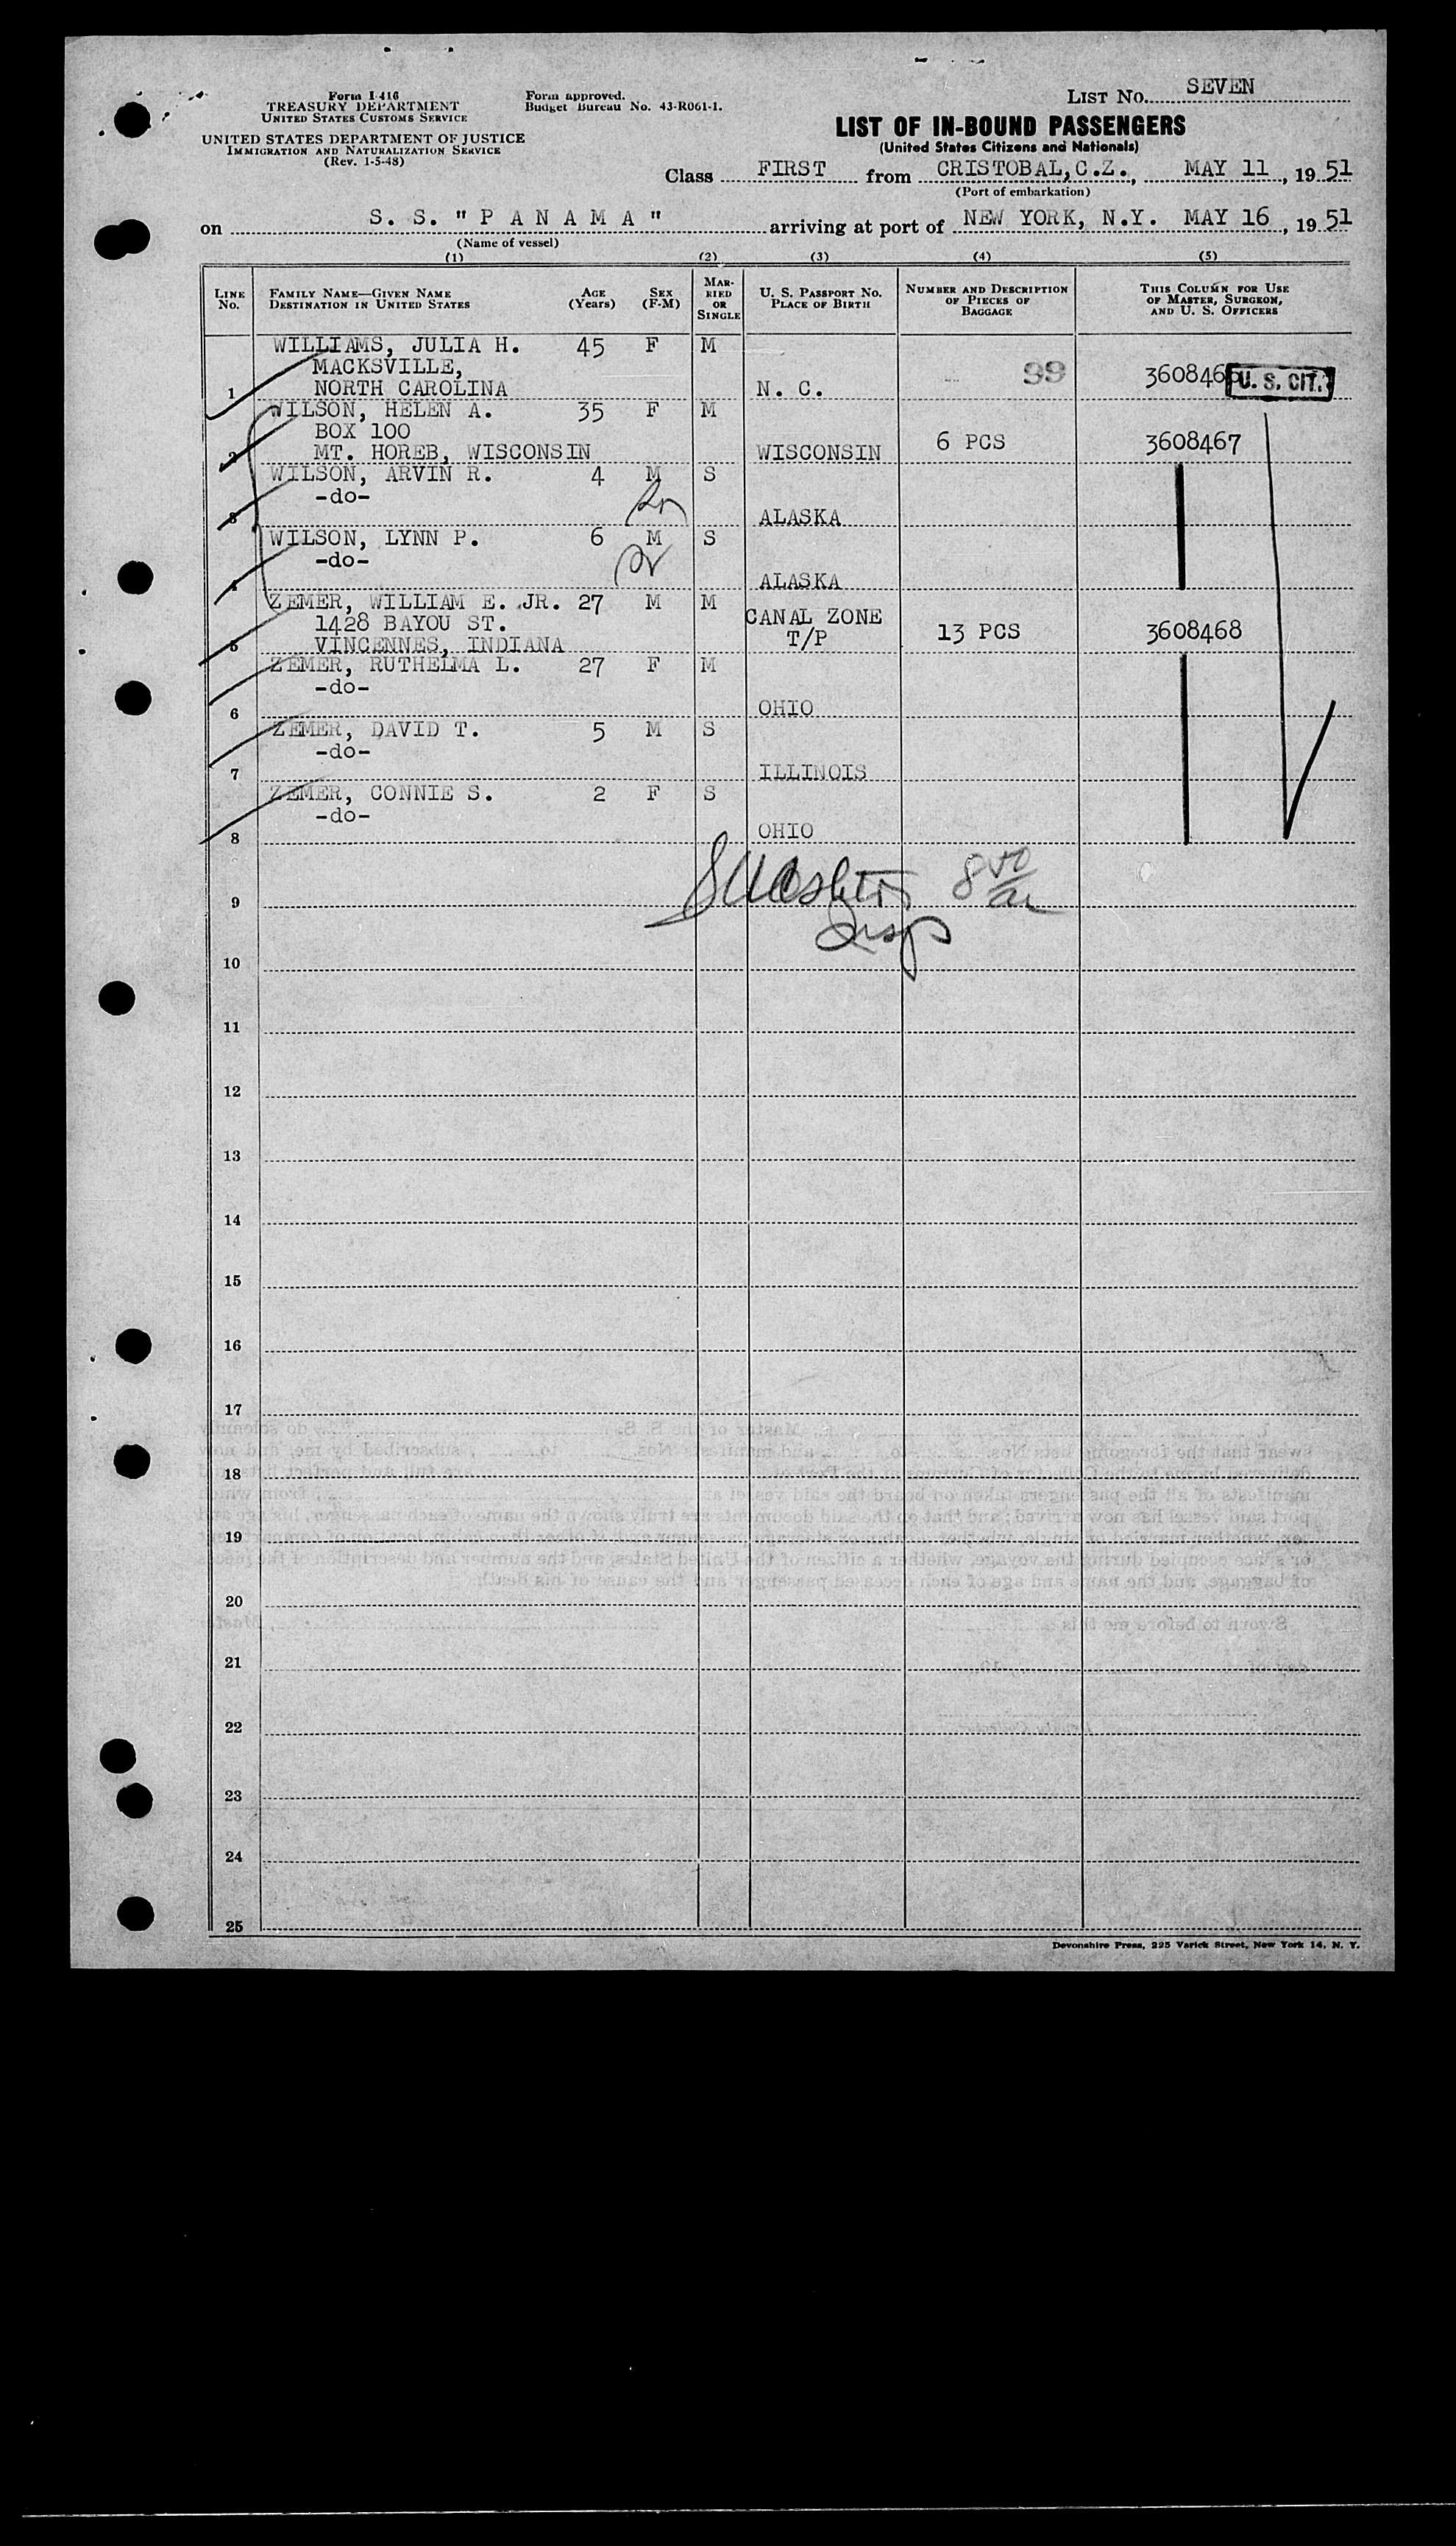 Form I-416
TREASURY DEPARTMENT
UNITED STATES CUSTOMS SERVICE
UNITED STATES DEPARTMENT OF JUSTICE
IMMIGRATION AND NATURALIZATION SERVICE
(Rev. 1-5-48)
Form approved.
Budget Bureau No. 43-R061-1.
LIST NO. SEVEN
LIST OF IN-BOUND PASSENGERS
(United States Citizens and Nationals)
Class FIRST from CRISTOBAL, C.Z., MAY 11, 19 51
(Port of embarkation)
on S. S. "P A N A M A" arriving at port of NEW YORK, N.Y. MAY 16, 19 51
(Name of vessel)
(1) (2) (3) (4) (5)
LINE No. FAMILY NAME—GIVEN NAME DESTINATION IN UNITED STATES AGE (Years) SEX (F-M) MARRIED OR SINGLE U. S. PASSPORT NO. PLACE OF BIRTH NUMBER AND DESCRIPTION OF PIECES OF BAGGAGE THIS COLUMN FOR USE OF MASTER, SURGEON, AND U. S. OFFICERS
WILLIAMS, JULIA H. 45 F M
MACKSVILLE, 99 3608466 U. S. CIT.
1 NORTH CAROLINA N. C.
WILSON, HELEN A. 35 F M
BOX 100 6 PCS 3608467
2 MT. HOREB, WISCONSIN WISCONSIN
WILSON, ARVIN R. 4 M S
-do-
3 ALASKA
WILSON, LYNN P. 6 M S
-do-
4 ALASKA
ZEMER, WILLIAM E. JR. 27 M M CANAL ZONE
1428 BAYOU ST. T/P 13 PCS 3608468
5 VINCENNES, INDIANA
ZEMER, RUTHELMA L. 27 F M
-do-
6 OHIO
ZEMER, DAVID T. 5 M S
-do-
7 ILLINOIS
ZEMER, CONNIE S. 2 F S
-do-
8 OHIO
9
10
11
12
13
14
15
16
17
18
19
20
21
22
23
24
25
Devonshire Press, 225 Varick Street, New York 14, N. Y.